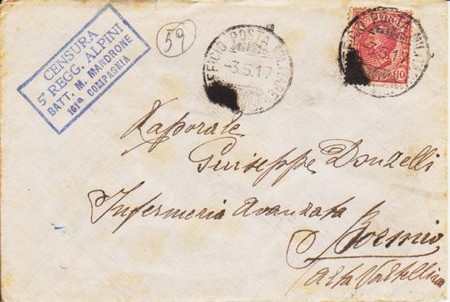 CENSURA
5° REGG. ALPINI
BATT. M. MANDRONE
161ª COMPAGNIA
59
UFFICIO POSTA MILITARE
-3.5.17
10
Kaporale
Giuseppe Donzelli
Infermeria Avanzata
Bormio
Alta Valtellina